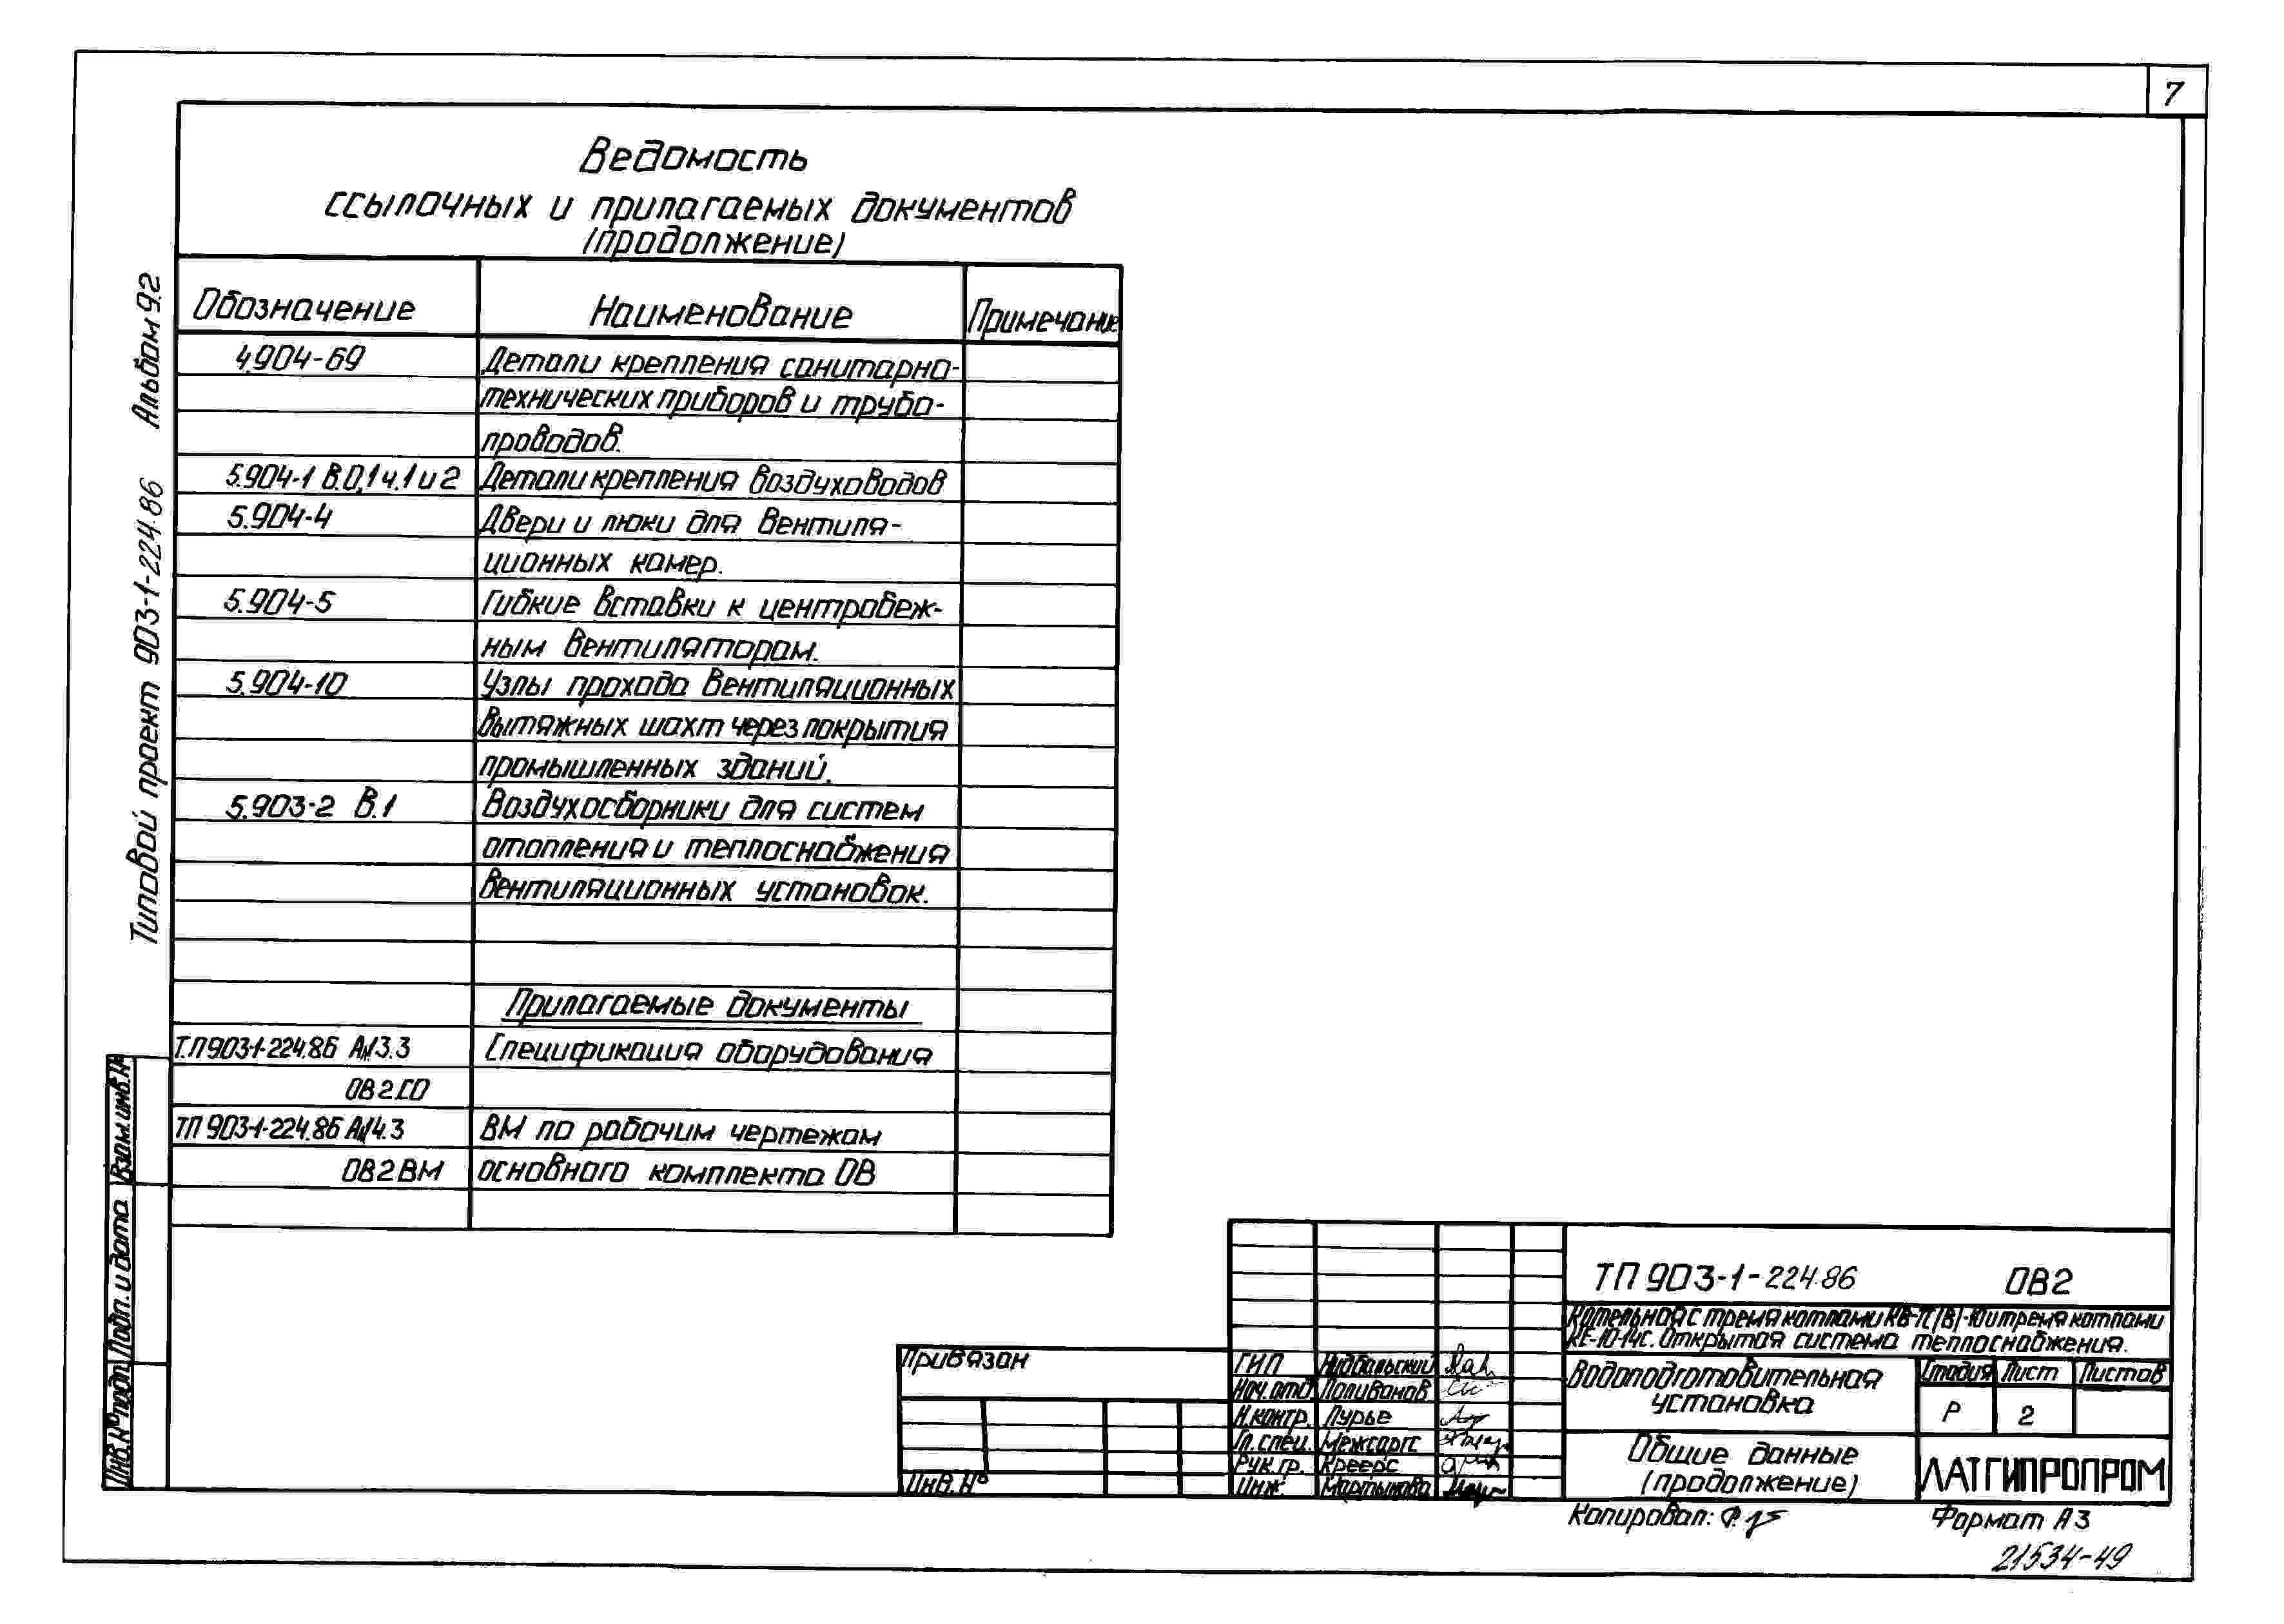 7
Ведомость
ссылочных и прилагаемых документов
(продолжение)
Обозначение Наименование Примечание
4.904-69 Детали крепления санитарно-
технических приборов и трубо-
проводов.
5.904-1 В.0,1 ч.1 и 2 Детали крепления воздуховодов
5.904-4 Двери и люки для вентиля-
ционных камер.
5.904-5 Гибкие вставки к центробеж-
ным вентиляторам.
5.904-10 Узлы прохода вентиляционных
вытяжных шахт через покрытия
промышленных зданий.
5.903-2 В.1 Воздухосборники для систем
отопления и теплоснабжения
вентиляционных установок.
Прилагаемые документы
Т.П 903-1-224.86 Ал13.3 Спецификация оборудования
ОВ2.СО
ТП 903-1-224.86 Ал14.3 ВМ по рабочим чертежам
ОВ2 ВМ основного комплекта ОВ
Типовой проект 903-1-224.86 Альбом 9.2
Взам.инв.№
Подп. и дата
Инв.№ подл.
ТП 903-1-224.86 ОВ2
Котельная с тремя котлами КВ- -10 и тремя котлами
КЕ-10-14с. Открытая система теплоснабжения.
Привязан
Инв.№
ГИП Нидбальский
Нач.отд Поливанов
Н.контр. Лурье
Гл.спец. Межсаргс
Рук.гр. Креерс
Инж. Мартынова
Водоподготовительная
установка
Стадия Лист Листов
Р 2
Общие данные
(продолжение)
ЛАТГИПРОПРОМ
Копировал:
Формат А3
21534-49